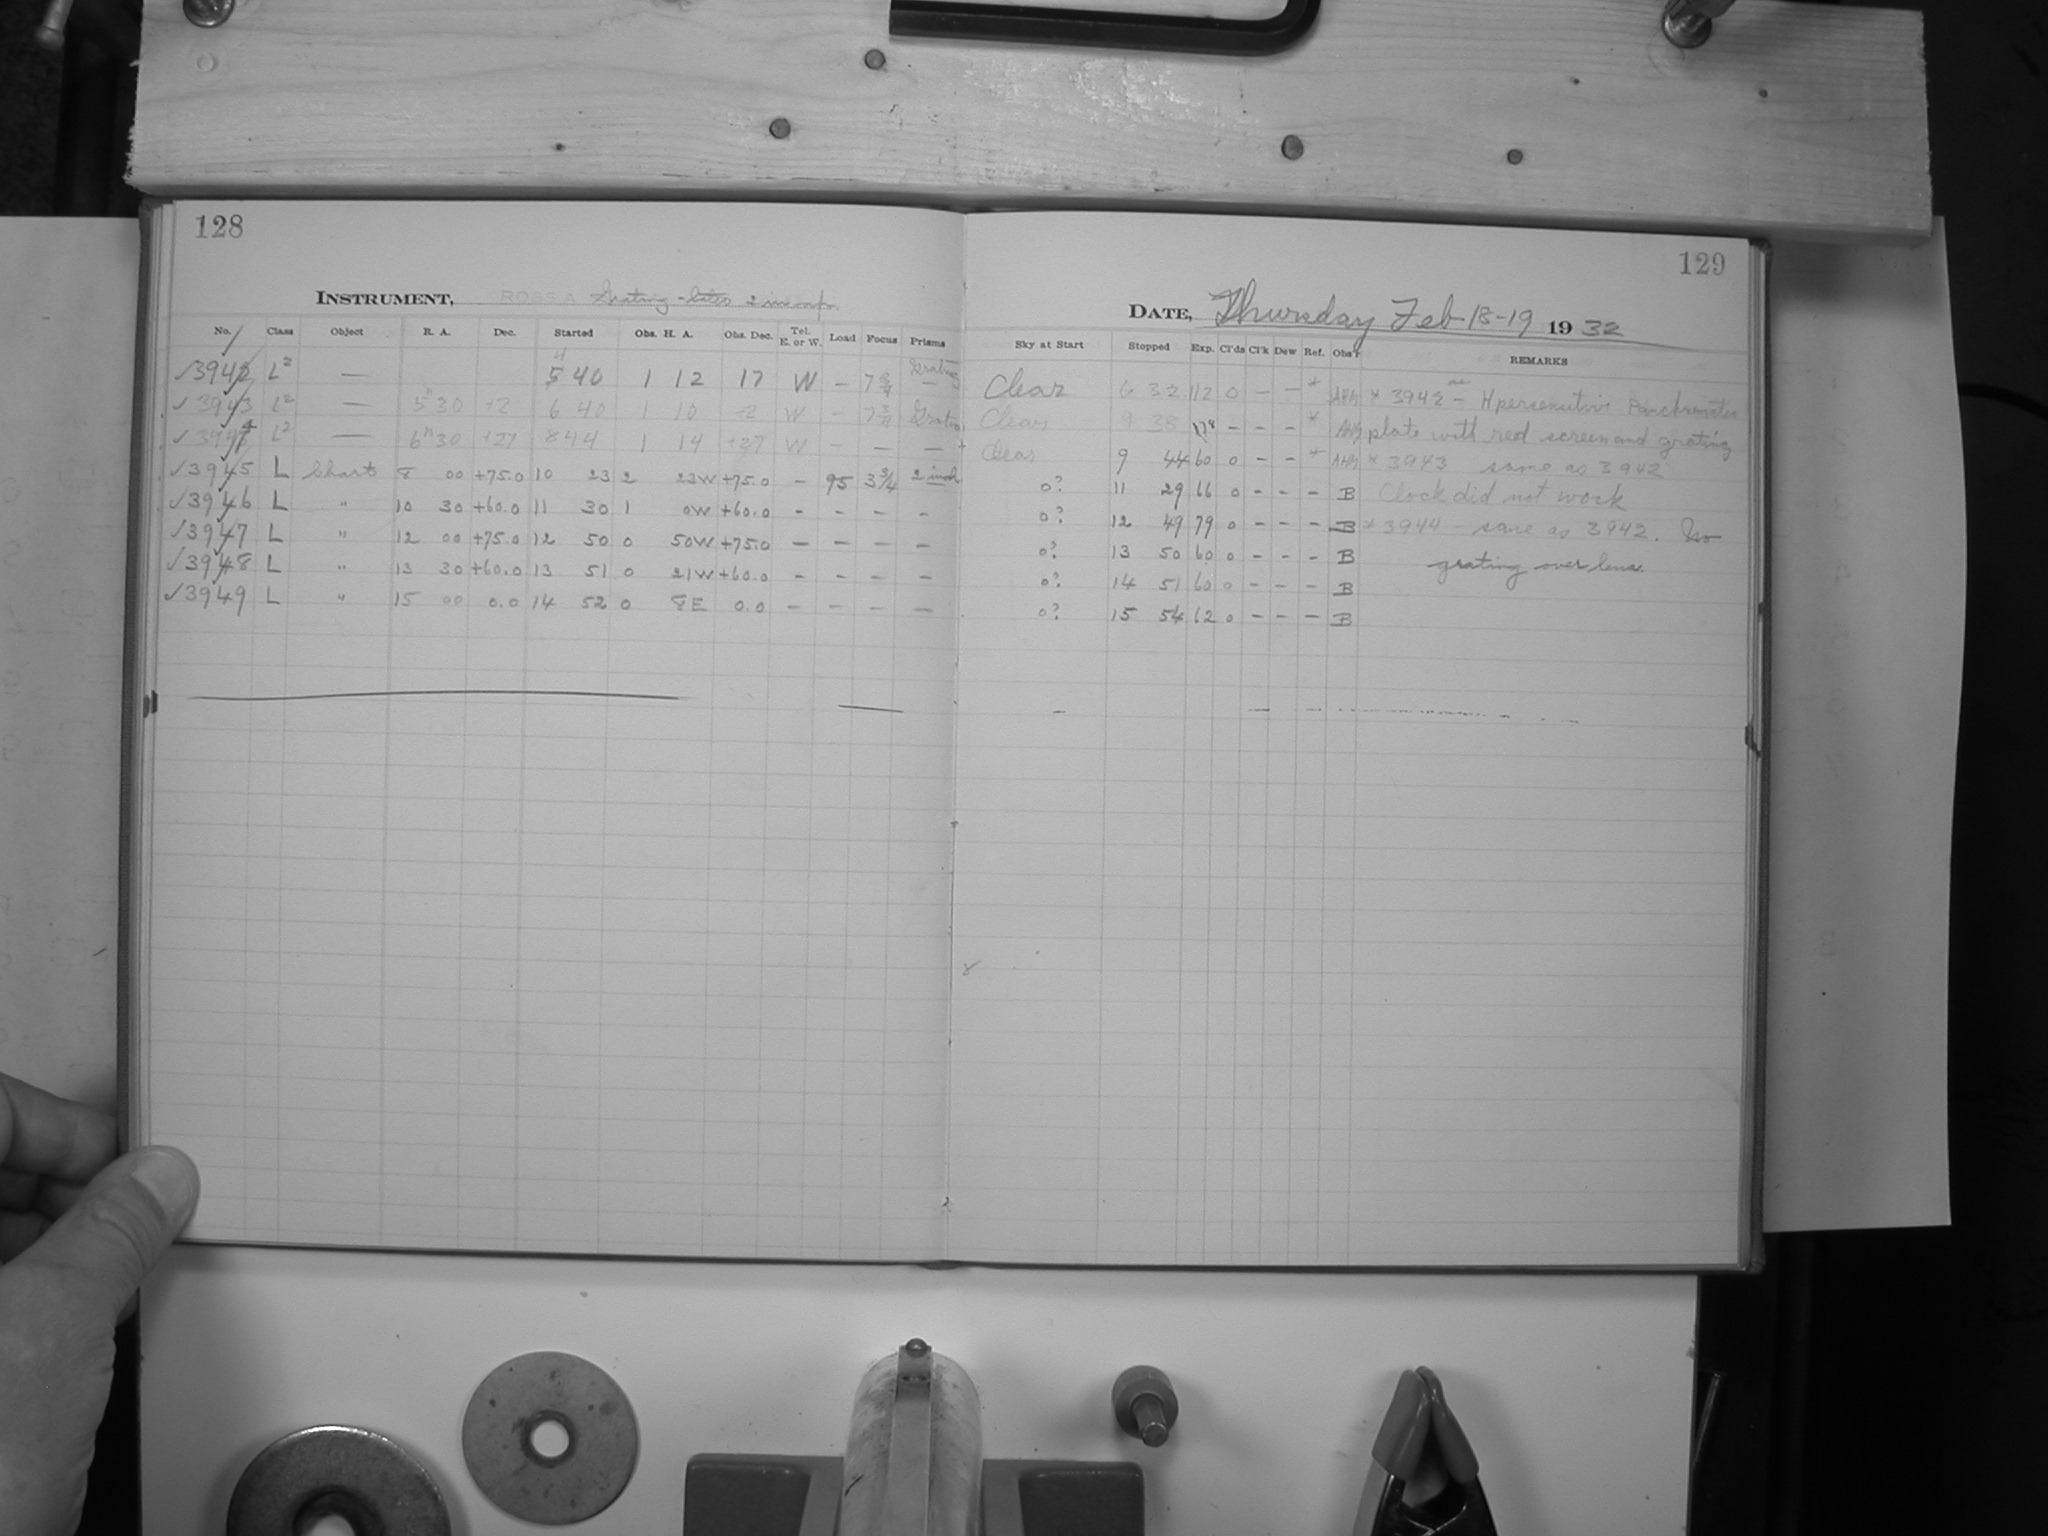 128
129
INSTRUMENT, ROSS A Grating - later 2 in
DATE, Thursday Feb 18-19 1932
No. Class Object R. A. Dec. Started Obs. H. A. Obs. Dec. Tel. E. or W. Load Focus Prisms Sky at Start Stopped Exp. Cl'ds Cl'k Dew Ref. Obs'r REMARKS
✓3942 L² — 5 40 1 12 17 W - 7 3/4 Grating — Clear 6 32 112 0 - - * AHM * 3942 - Hpersensitive Panchromatic
✓3943 L² — 5h 30 +2 6 40 1 10 +2 W - 7 3/4 Clear 9 38 178 - - - * AHM plate with red screen and grating
✓3944 L² — 6h 30 +27 8 44 1 14 +27 W — — Clear 9 44 60 0 - - * AHM * 3943 same as 3942
✓3945 L Chart 8 00 +75.0 10 23 2 23W +75.0 - 95 3 3/4 2 inch 0? 11 29 66 0 - - - B Clock did not work
✓3946 L " 10 30 +60.0 11 30 1 0W +60.0 - - - - 0? 12 49 79 0 - - - B * 3944 - same as 3942. No
✓3947 L " 12 00 +75.0 12 50 0 50W +75.0 - - - - 0? 13 50 60 0 - - - B grating over lens.
✓3948 L " 13 30 +60.0 13 51 0 21W +60.0 - - - - 0? 14 51 60 0 - - - B
✓3949 L " 15 00 0.0 14 52 0 8E 0.0 - - - - 0? 15 54 62 0 - - - B